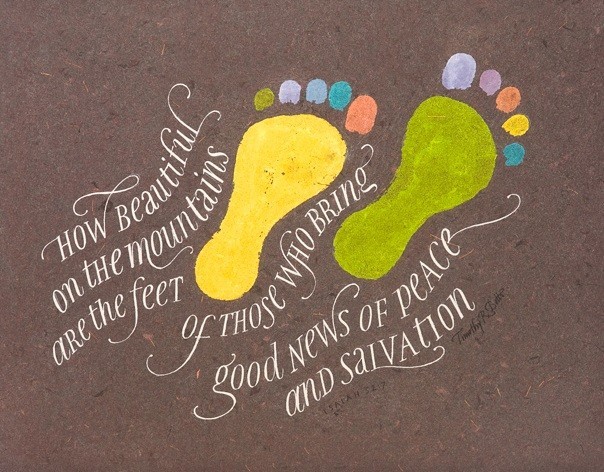 HOW BEAUTIFUL
ON THE MOUNTAINS
ARE THE FEET
OF THOSE WHO BRING
GOOD NEWS OF PEACE
AND SALVATION
ISAIAH 52:7